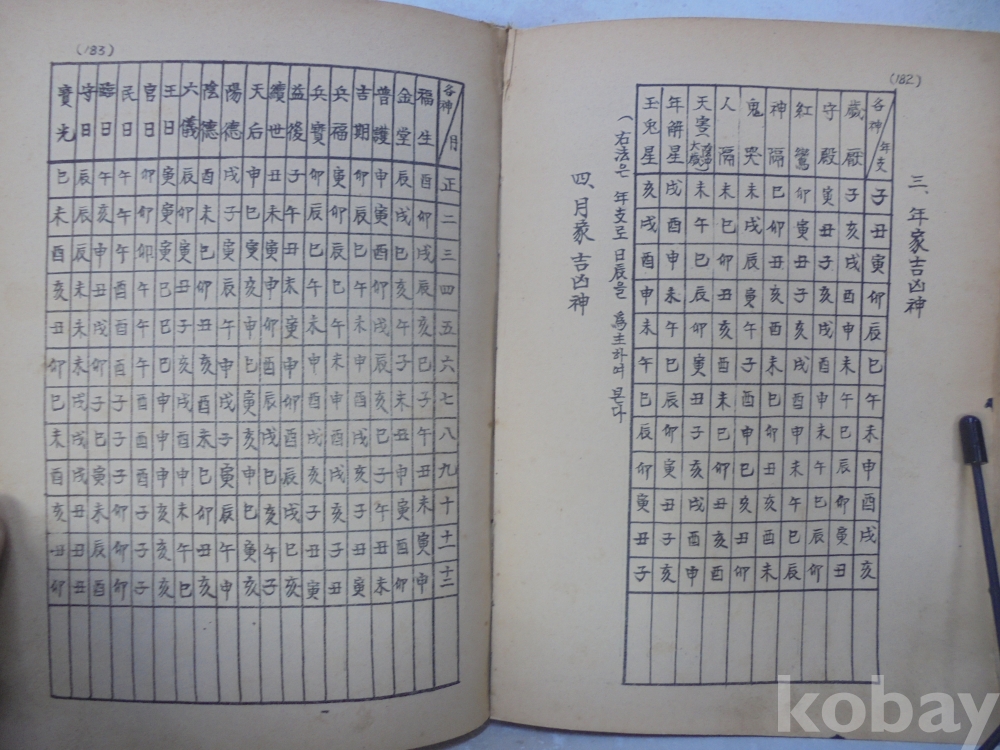 (182)
三、年家吉凶神
各神 年支 子 丑 寅 卯 辰 巳 午 未 申 酉 戌 亥
歲厭 子 亥 戌 酉 申 未 午 巳 辰 卯 寅 丑
守殿 寅 丑 子 亥 戌 酉 申 未 午 巳 辰 卯
紅鸞 卯 寅 丑 子 亥 戌 酉 申 未 午 巳 辰
神隔 巳 卯 丑 亥 酉 未 巳 卯 丑 亥 酉 未
鬼哭 未 戌 辰 寅 午 子 酉 申 巳 亥 丑 卯
人隔 未 巳 卯 丑 亥 酉 未 巳 卯 丑 亥 酉
天害 未 午 巳 辰 卯 寅 丑 子 亥 戌 酉 申
年解星 戌 酉 申 未 午 巳 辰 卯 寅 丑 子 亥
玉兎星 亥 戌 酉 申 未 午 巳 辰 卯 寅 丑 子
(右法은 年支로 日辰을 爲主하여 본다
四、月家吉凶神
(183)
各神 月 正 二 三 四 五 六 七 八 九 十 十一 十二
福生 酉 卯 戌 辰 亥 巳 子 午 丑 未 寅 申
金堂 辰 戌 巳 亥 午 子 未 丑 申 寅 酉 卯
普護 申 寅 酉 卯 戌 辰 亥 巳 子 午 丑 未
吉期 卯 辰 巳 午 未 申 酉 戌 亥 子 丑 寅
兵福 寅 卯 辰 巳 午 未 申 酉 戌 亥 子 丑
兵寶 卯 辰 巳 午 未 申 酉 戌 亥 子 丑 寅
益後 子 午 丑 未 寅 申 卯 酉 辰 戌 巳 亥
續世 丑 未 寅 申 卯 酉 辰 戌 巳 亥 午 子
天后 申 巳 寅 亥 申 巳 寅 亥 申 巳 寅 亥
陽德 戌 子 寅 辰 午 申 戌 子 寅 辰 午 申
陰德 酉 未 巳 卯 丑 亥 酉 未 巳 卯 丑 亥
六儀 辰 卯 寅 丑 子 亥 戌 酉 申 未 午 巳
王日 寅 寅 寅 巳 巳 巳 申 申 申 亥 亥 亥
官日 卯 卯 卯 午 午 午 酉 酉 酉 子 子 子
民日 午 午 午 酉 酉 酉 子 子 子 卯 卯 卯
日 午 亥 申 丑 戌 卯 子 巳 寅 未 辰 酉
守日 辰 辰 辰 未 未 未 戌 戌 戌 丑 丑 丑
寶光 巳 未 酉 亥 丑 卯 巳 未 酉 亥 丑 卯
kobay